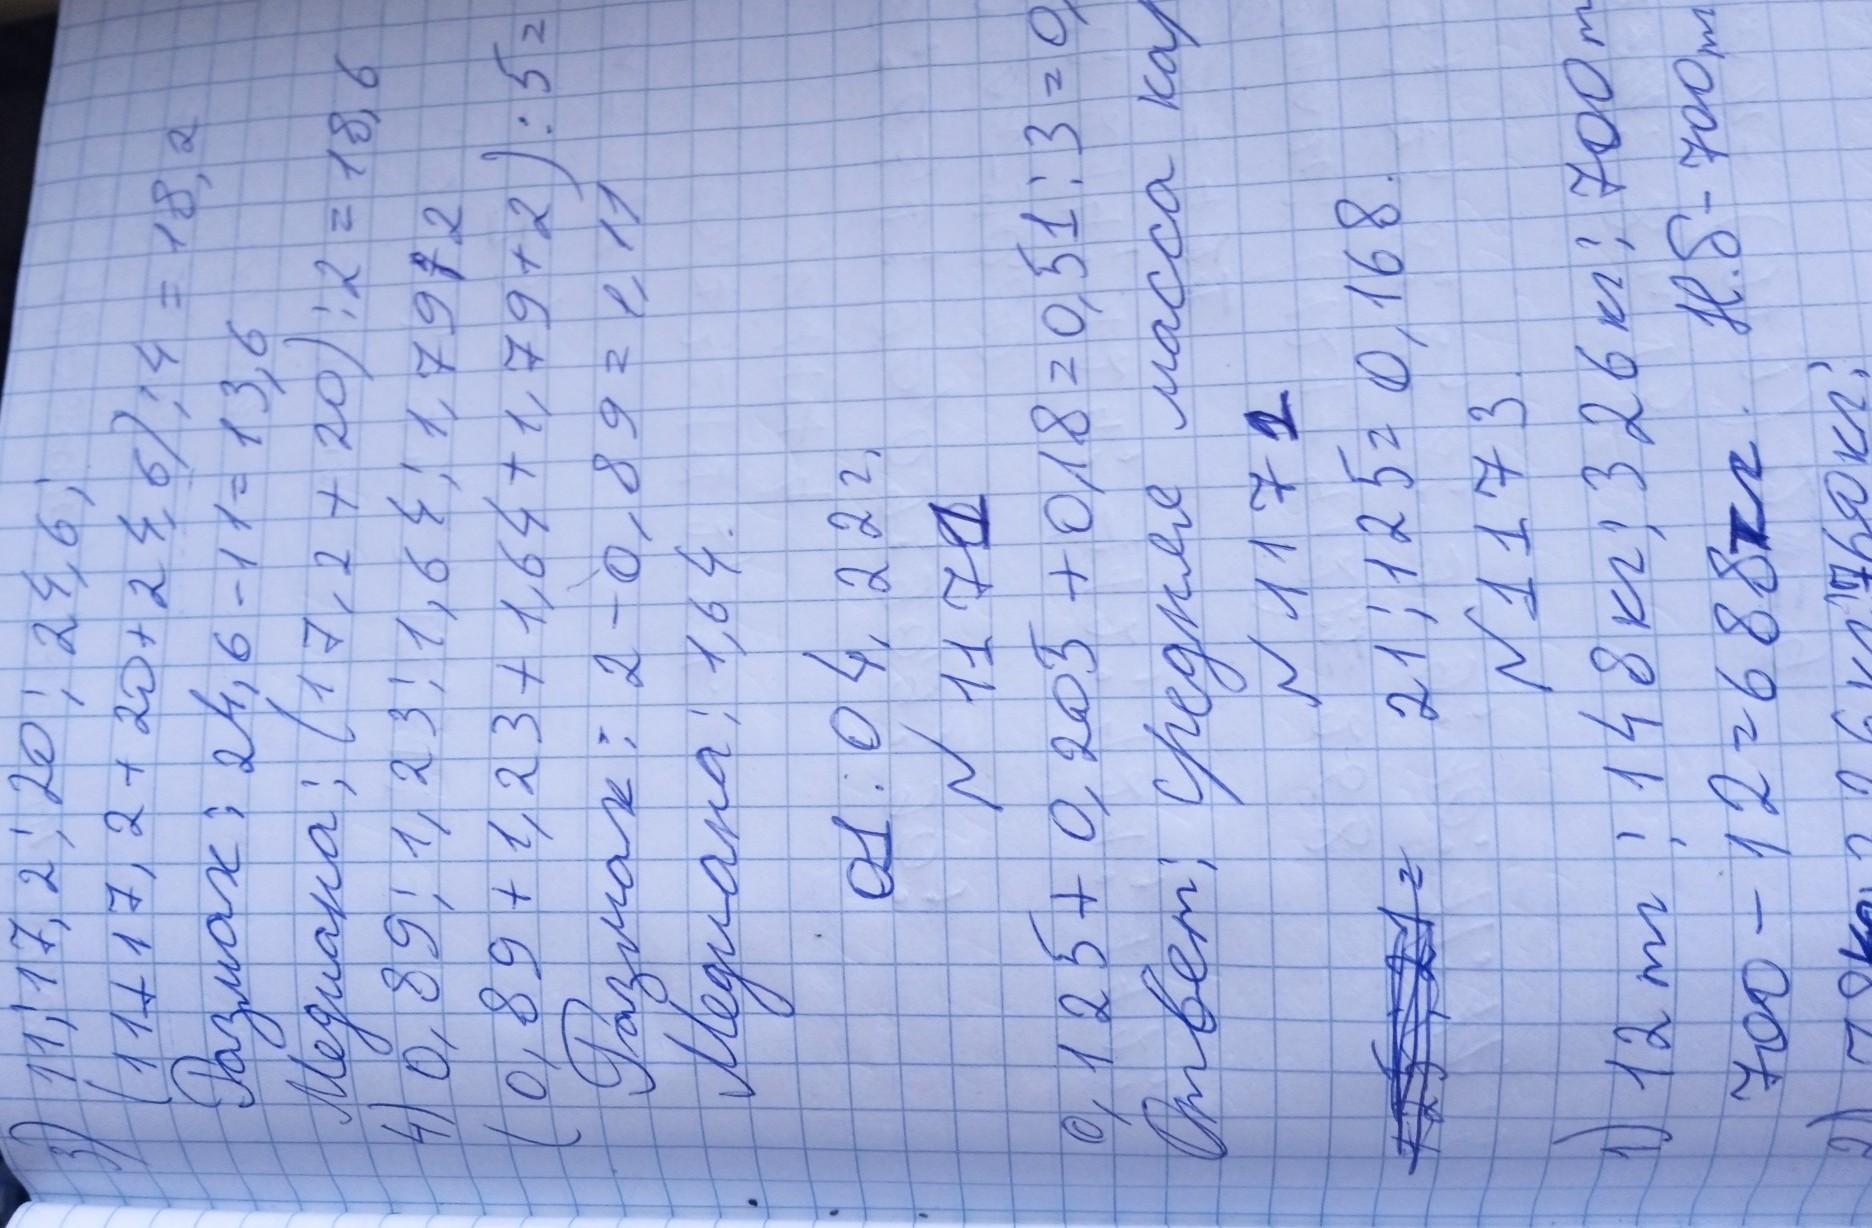 3) 11; 17,2; 20; 24,6;
(11+17,2+20+24,6):4=18,2
Размах: 24,6-11=13,6
Медиана: (17,2+20):2=18,6
4) 0,89; 1,23; 1,64; 1,79; 2
(0,89+1,23+1,64+1,79+2):5=
Размах: 2-0,89=1,11
Медиана: 1,64.
01.04.22г.
№1171
0,125+0,203+0,18=0,51:3=0,
Ответ: среднее масса кар
№1172
21:125=0,168.
№1173
1) 12т; 148кг; 326кг; 700т
Н.б-700т
700-12=688т.
2)